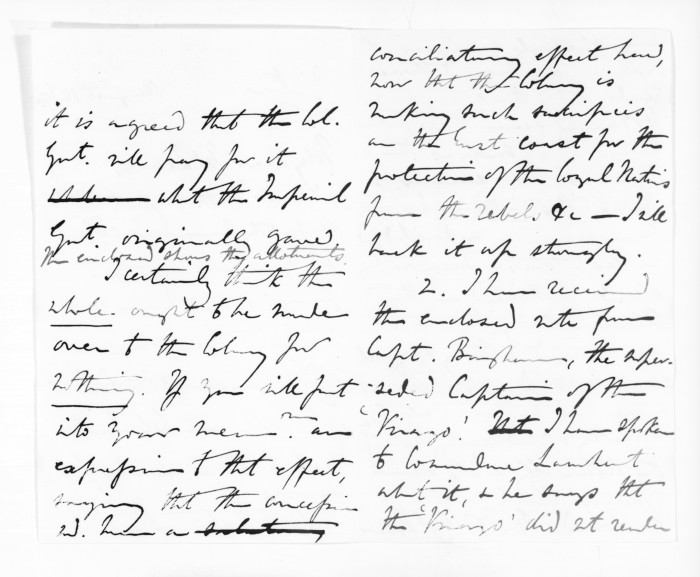 it is agreed that the Col.
Govt. will pay for it
what the Imperial
Govt. originally gained
The enclosed shows the allotments.
I certainly think the
whole ought to be made
over to the Colony for
nothing. If you will put
into your mem.m an
expression to that effect,
saying that the concession
wd. have a salutary
conciliatory effect here,
now that the Colony is
making such sacrifices
on the East coast for the
protection of the loyal Natives
from the rebels &c — I will
back it up strongly.
2. I have received
the enclosed note from
Capt. Bingham, the super-
-seded Captain of the
'Virago'. Not I have spoken
to Commodore Lambert
about it, & he says that
the 'Virago' did not render